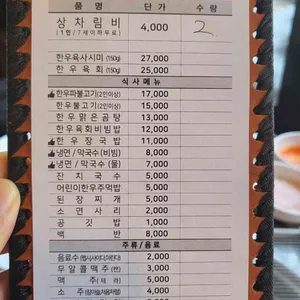 품 명 단 가 수 량
상 차 림 비 4,000 2
(1인/7세이하무료)
한우육사시미 (150g) 27,000
한 우 육 회 (150g) 25,000
식 사 메 뉴
한우파불고기(2인이상) 17,000
한우불고기(2인이상) 15,000
한 우 맑 은 곰 탕 13,000
한우육회비빔밥 12,000
한 우 장 국 밥 11,000
냉면 / 막국수 (비빔) 8,000
냉면 / 막국수 (물) 7,000
잔 치 국 수 5,000
어린이한우주먹밥 5,000
된 장 찌 개 5,000
소 면 사 리 2,000
공 깃 밥 1,000
백 반 8,000
주류 / 음료
음료수 2,000
무 알 콜 맥 주 (캔) 3,000
맥 주 (테 라) 5,000
소 주 4,000